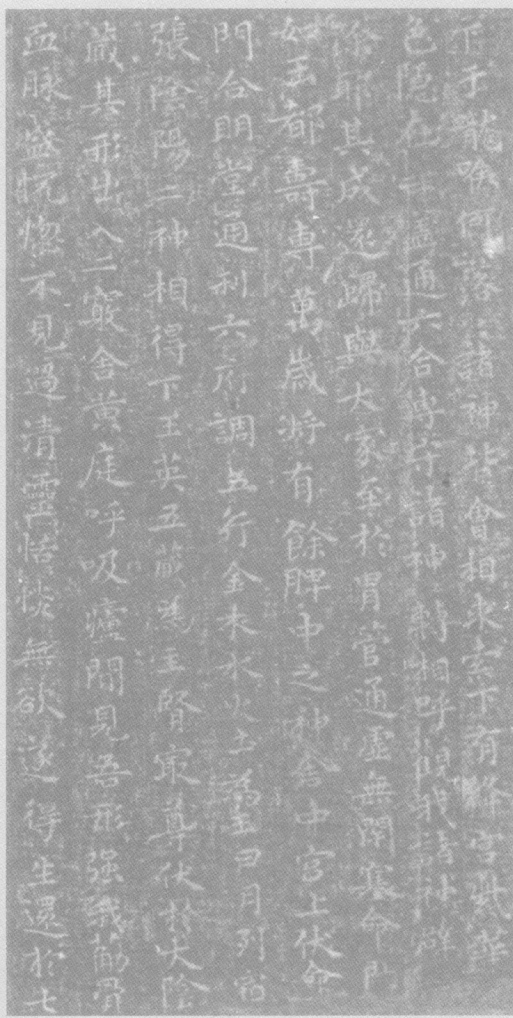 下于龍喉何落〻諸神皆會相求索下有絳宮紫華
色隱在華蓋通六合專守諸神轉相呼觀我諸神辟
除耶其成還歸與大家至於胃管通虛無閉塞命門
如玉都壽專萬歲將有餘脾中之神舍中宮上伏命
門合明堂通利六府調五行金木水火土為王日月列宿
張陰陽二神相得下玉英五藏為主腎㝡尊伏於大陰
藏其形出入二竅舍黃庭呼吸廬間見吾形强我筋骨
血脉盛恍惚不見過清靈恬惔無欲遂得生還於七